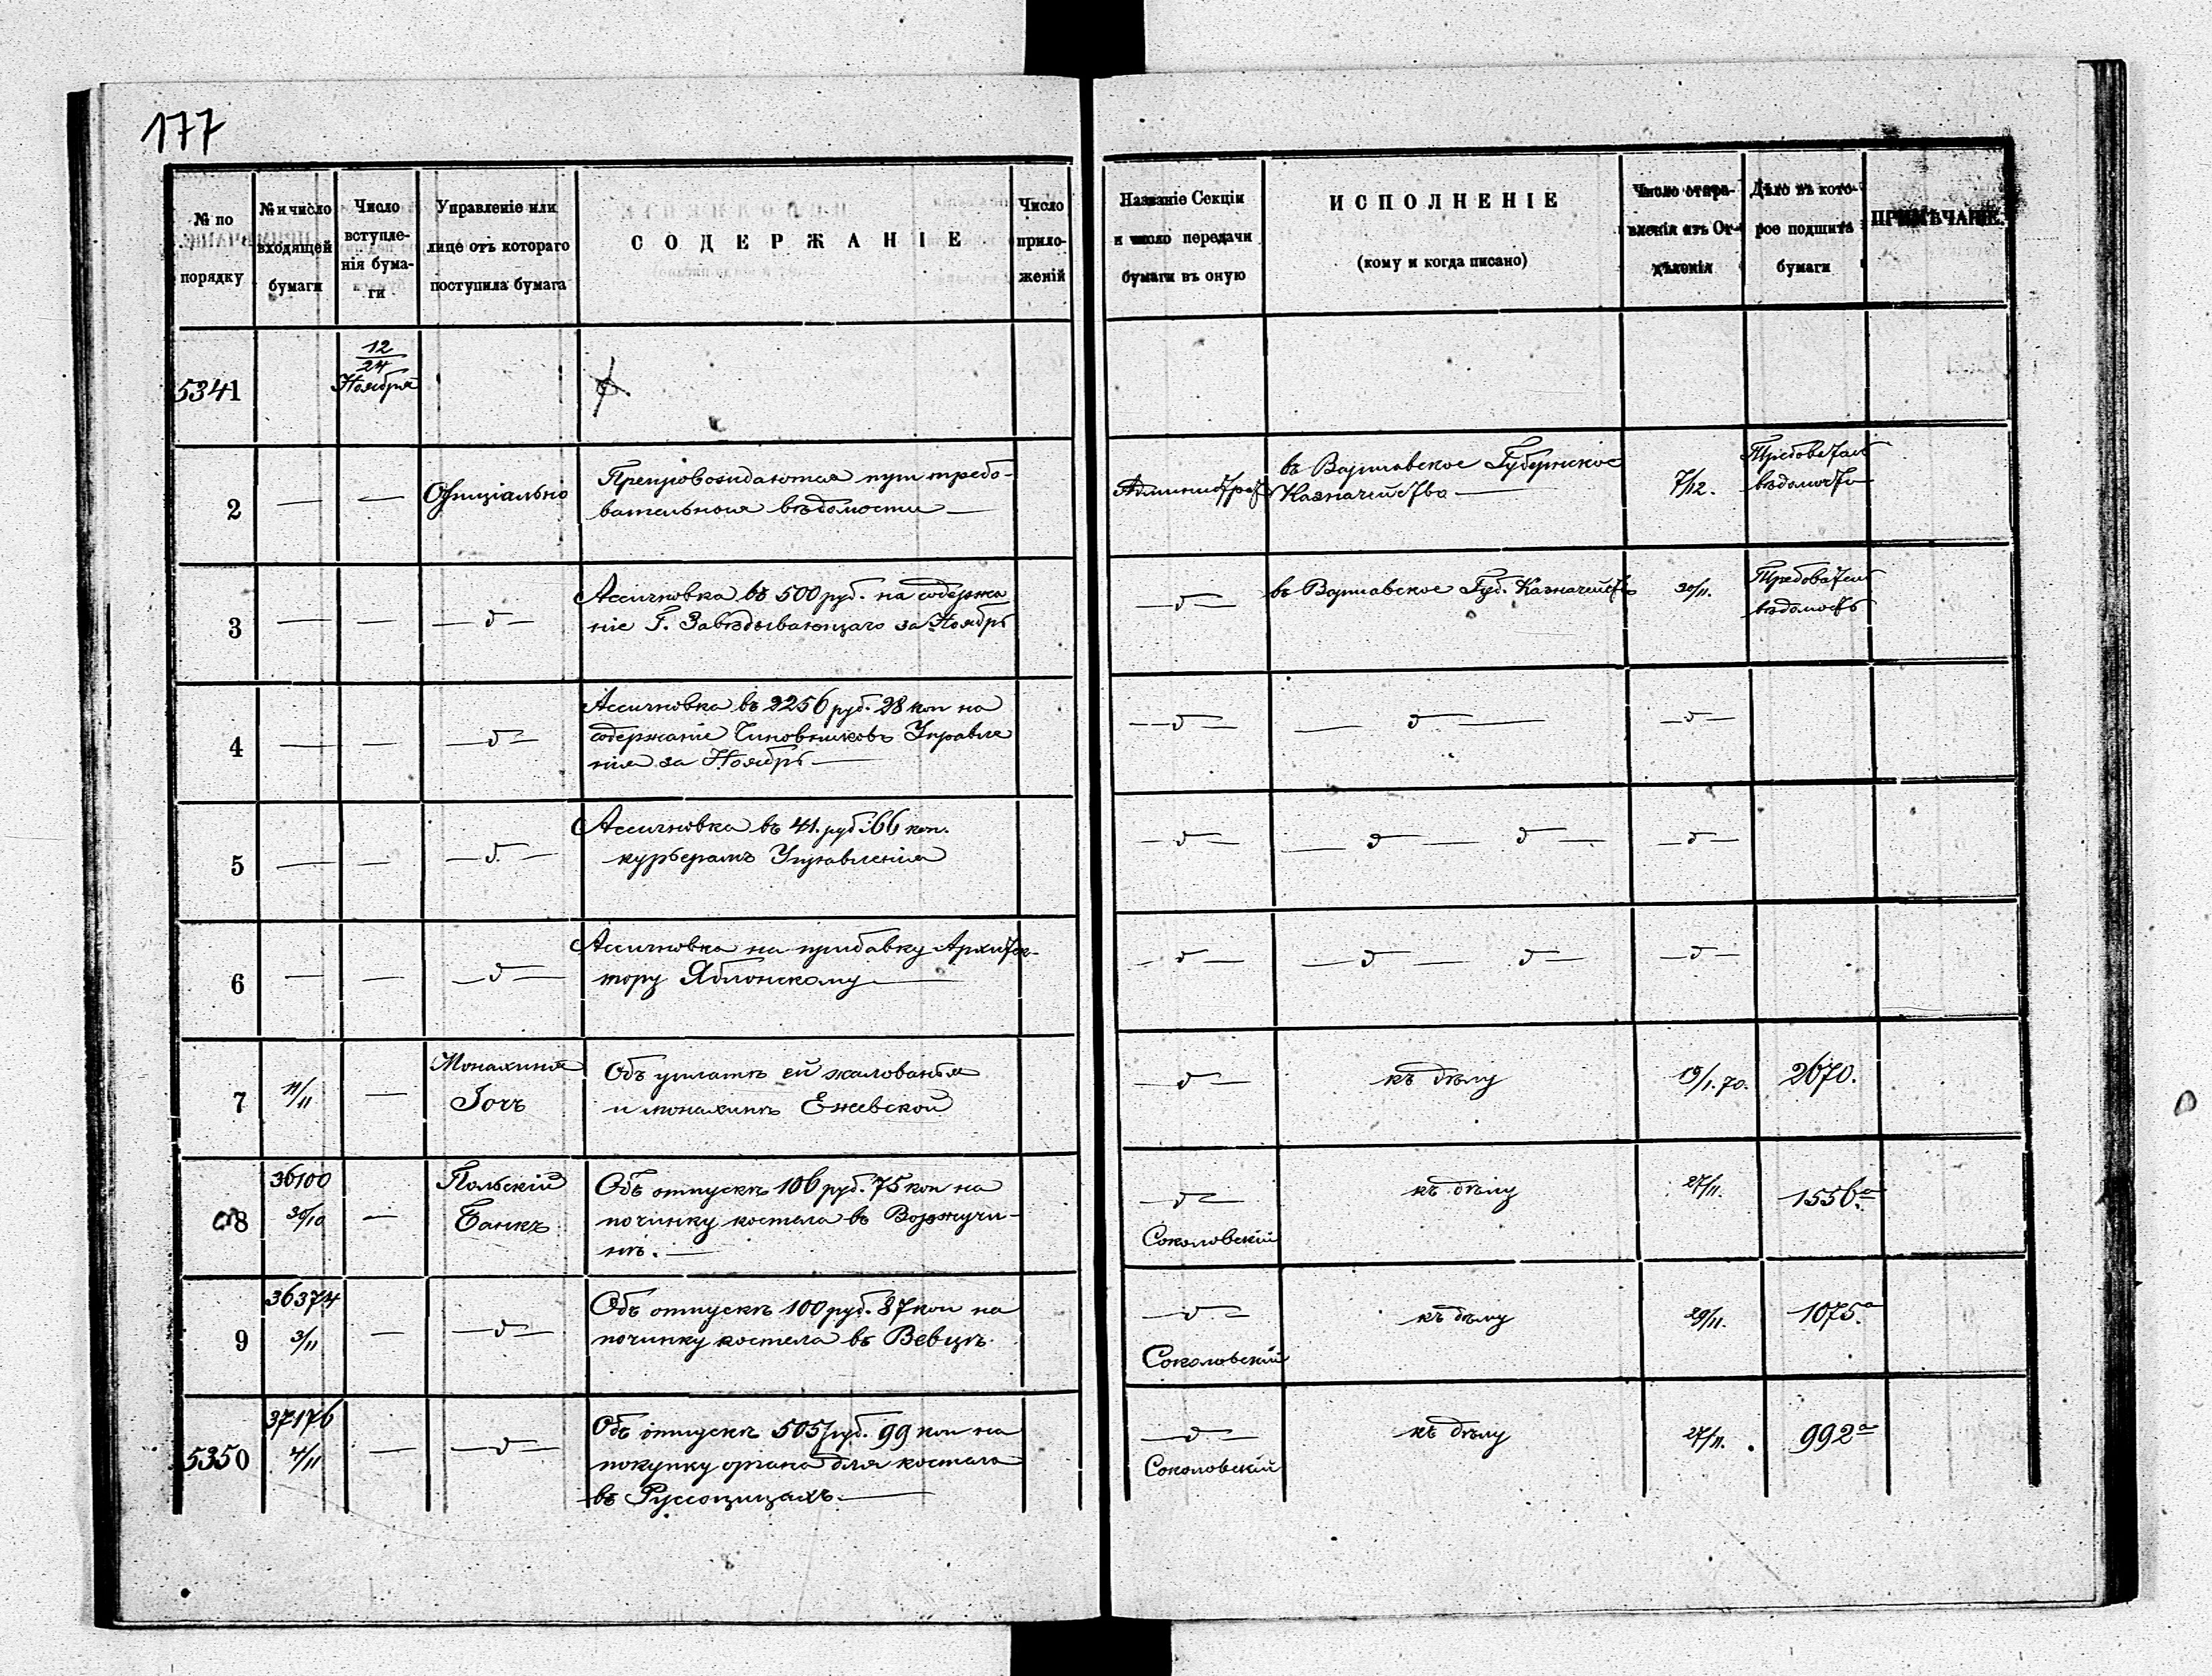 177
№ по порядку
№ и число входящей бумаги
Число вступленія бумаги
Управленіе или лице отъ котораго поступила бумага
СОДЕРЖАНІЕ
Число приложеній
Названіе Секціи и число передачи бумаги въ оную
ИСПОЛНЕНІЕ
(кому и когда писано)
Число отправленія изъ Отдѣленія
Дѣло въ которое подшита бумага
ПРИМѢЧАНІЕ.
5341
12/24
Ноября
2 — — Офиціально
Препровождаются при требо-
вательныя вѣдомости —
въ Варшавское Губернское
Казначейство —
7/12.
вѣдомости
3 — — —д—
Ассигновка въ 500 руб. на содержа
ніе Г. Завѣдывающаго за Ноябрь
—д— въ Варшавское Губ. Казначейство 30/11.
вѣдомость
4 — — —д—
Ассигновка въ 2256 руб. 28 коп на
содержаніе Чиновниковъ Управле
нія за Ноябрь —
—д— —д— —д—
5 — — —д—
Ассигновка въ 41. руб. 66 коп.
курьерамъ Управленія
—д— —д— —д— —д—
6 — — —д—
Ассигновка на прибавку Архитек-
тору Яблонскому —
—д— —д— —д— —д—
7 11/11 — Монахиня
Объ уплатѣ ей жалованья
и монахинѣ Ежевской
—д— къ дѣлу 19/1.70. 2670.
8 36100
30/10 — Польскій
Банкъ
Объ отпускѣ 106 руб. 75 коп на
починку костела въ Воржучи-
нѣ. —
—д—
Соколовскій
къ дѣлу 27/11. 1556.а
9 36374
3/11 — —д—
Объ отпускѣ 100 руб. 87 коп на
починку костела въ Вевцѣ.
—д—
Соколовскій
къ дѣлу 29/11. 1075.а
5350 37176
4/11 — —д—
Объ отпускѣ 505 руб. 99 коп на
покупку органа для костела
въ Руссоцицахъ. —
—д—
Соколовскій
къ дѣлу 27/11. 992а